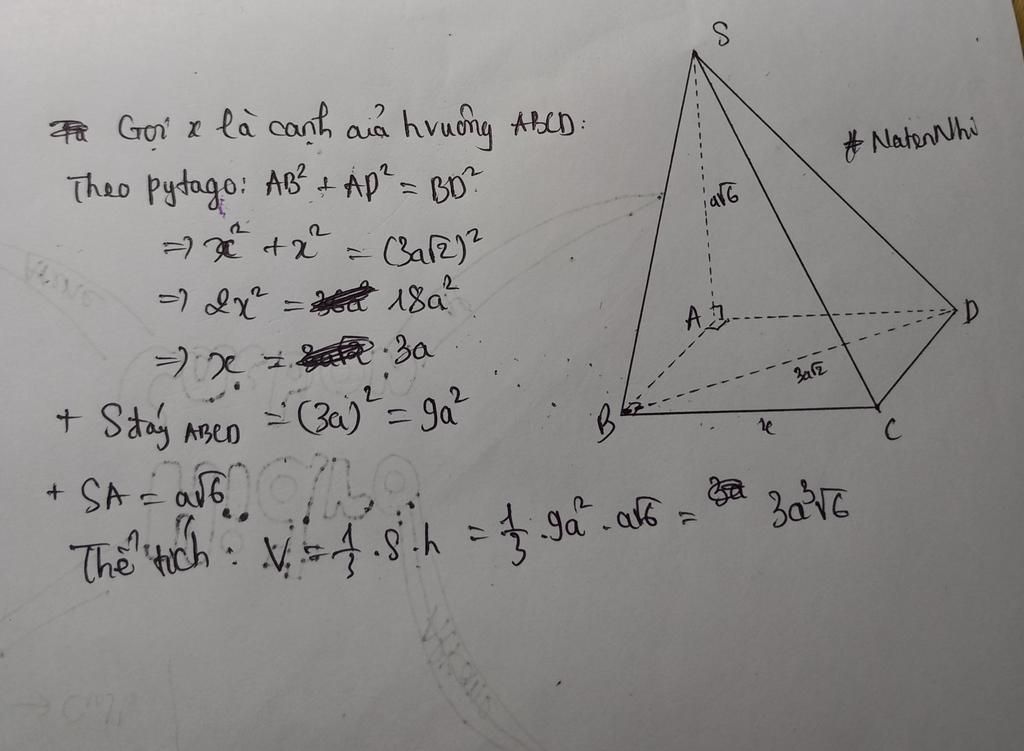 Gọi x là cạnh của hvuông ABCD:
Theo pytago: AB² + AD² = BD²
=> x² + x² = (3a√2)²
=> 2x² = 18a²
=> x = 3a
+ Sđáy ABCD = (3a)² = 9a²
+ SA = a√6
Thể tích : V = 1/3 . S . h = 1/3 . 9a² . a√6 = 3a³√6
S
# NatenNhi
a√6
A
D
3a√2
B
x
C